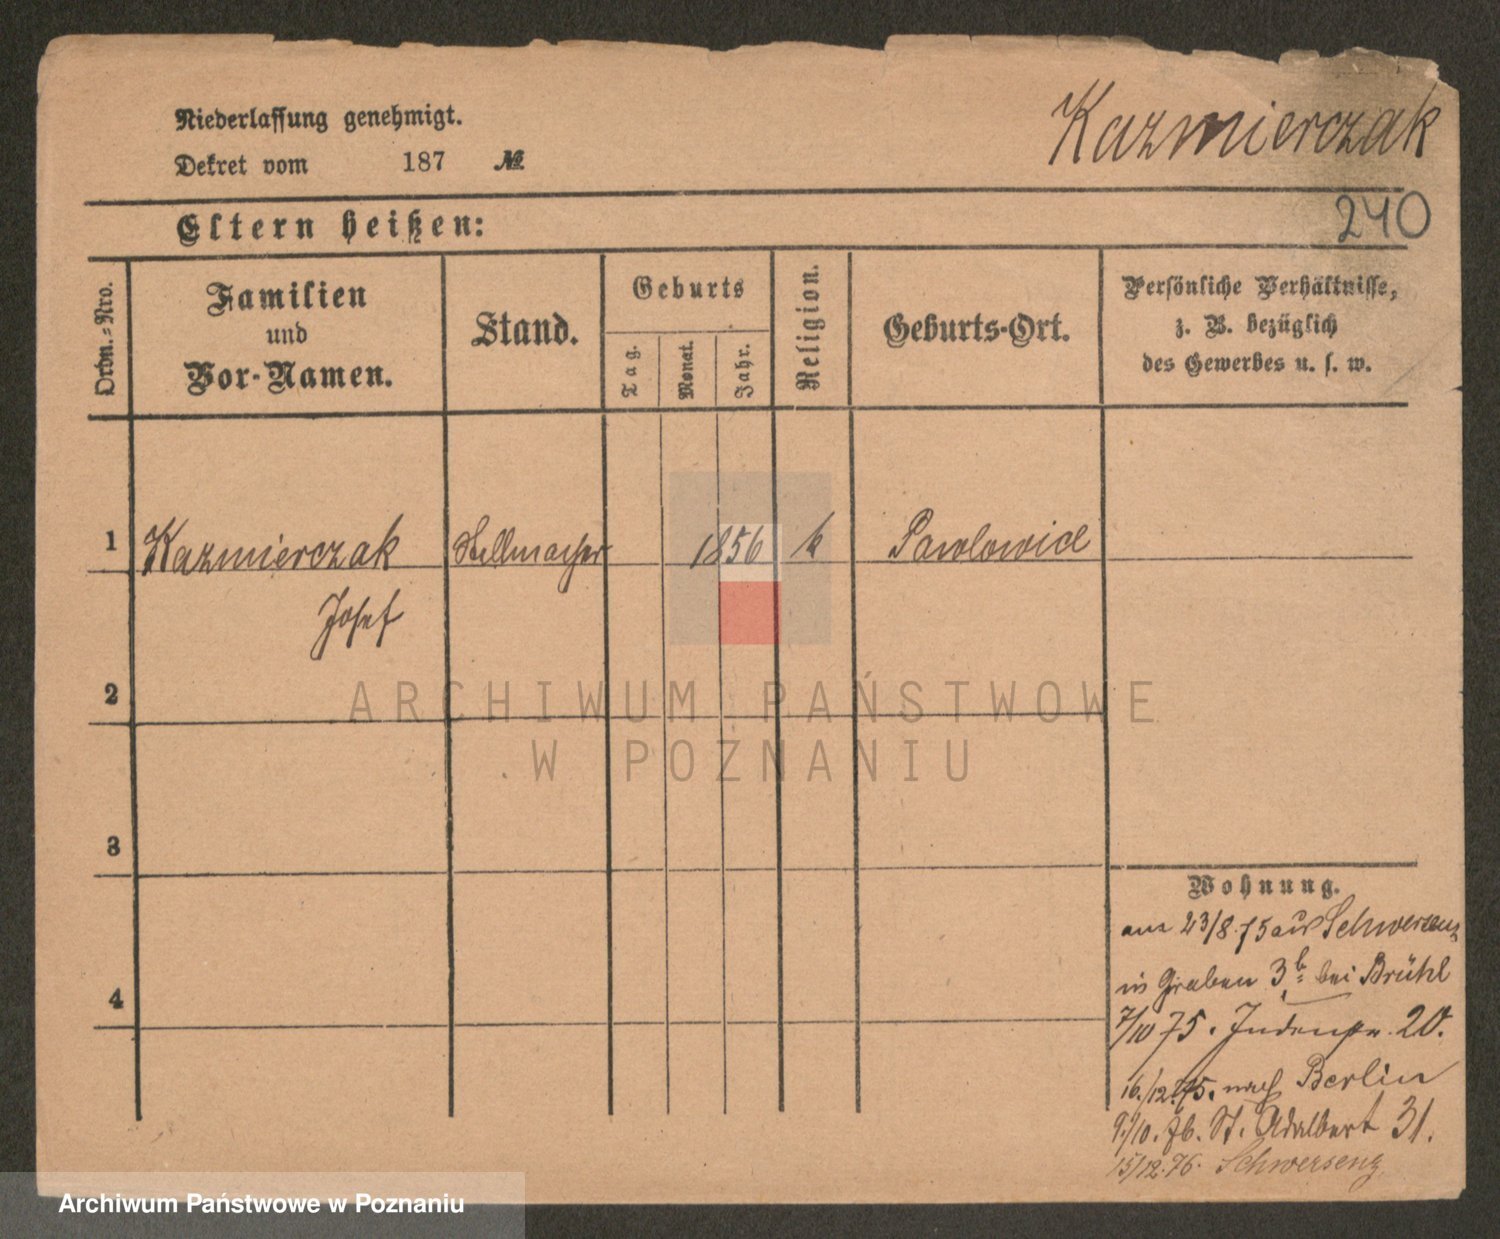 Niederlassung genehmigt.
Kazmierczak
Dekret vom 187 №
240
Eltern heißen:
Ordn.-Nro.
Familien
und
Vor-Namen.
Stand.
Geburts
Tag.
Monat.
Jahr.
Religion.
Geburts-Ort.
Persönliche Verhältnisse,
z. B. bezüglich
des Gewerbes u. s. w.
1 Kazmierczak Stellmacher 1856 k Pawlowice
Josef
2
3
4
Wohnung.
23/8 75 aus Schwersenz
in Graben 3 b bei Brühl
7/10 75. Judenstr. 20.
16./12.75. nach Berlin
9/10. 76. St. Adalbert 31.
15/12.76. Schwersenz
ARCHIWUM PAŃSTWOWE
W POZNANIU
Archiwum Państwowe w Poznaniu